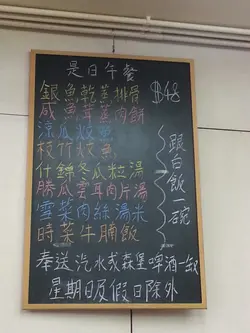 是日午餐
銀魚乾蒸排骨 $48
咸魚茸蒸肉餅
涼瓜炆魚
枝竹炆魚
什錦冬瓜粒湯
勝瓜雲耳肉片湯
雪菜肉絲湯米
時菜牛腩飯
跟白飯一碗
奉送汽水或森堡啤酒一
星期日及假日除外